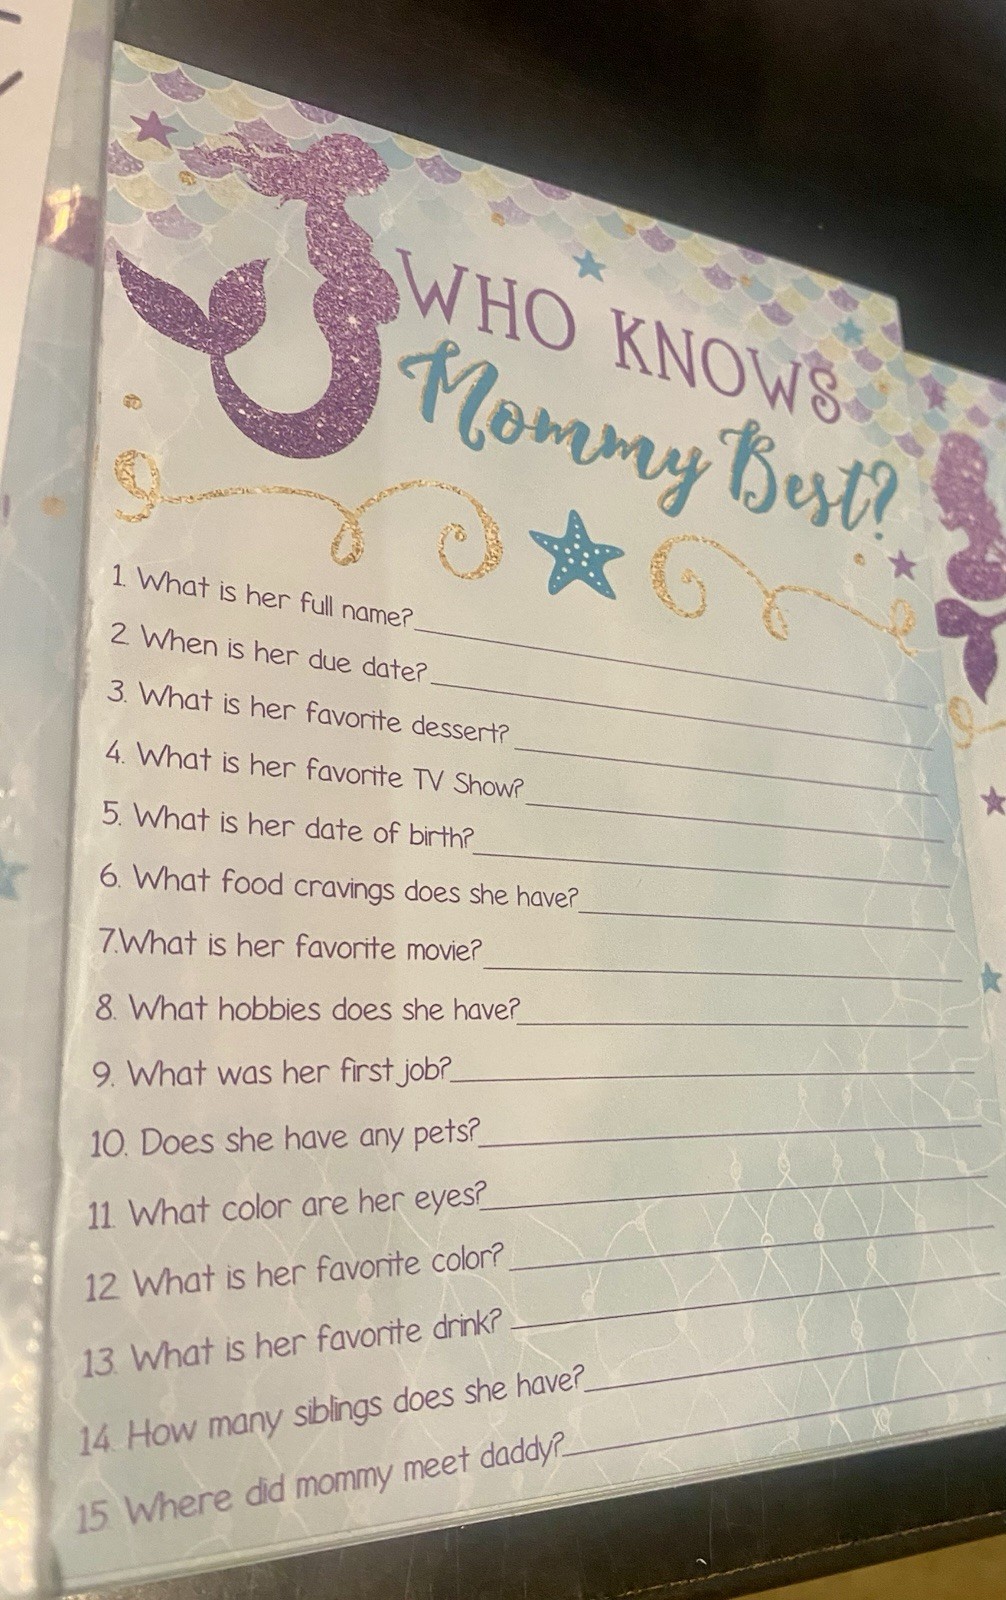 WHO KNOWS
Mommy Best?
1. What is her full name?
2. When is her due date?
3. What is her favorite dessert?
4. What is her favorite TV Show?
5. What is her date of birth?
6. What food cravings does she have?
7.What is her favorite movie?
8. What hobbies does she have?
9. What was her first job?
10. Does she have any pets?
11. What color are her eyes?
12. What is her favorite color?
13. What is her favorite drink?
14. How many siblings does she have?
15. Where did mommy meet daddy?